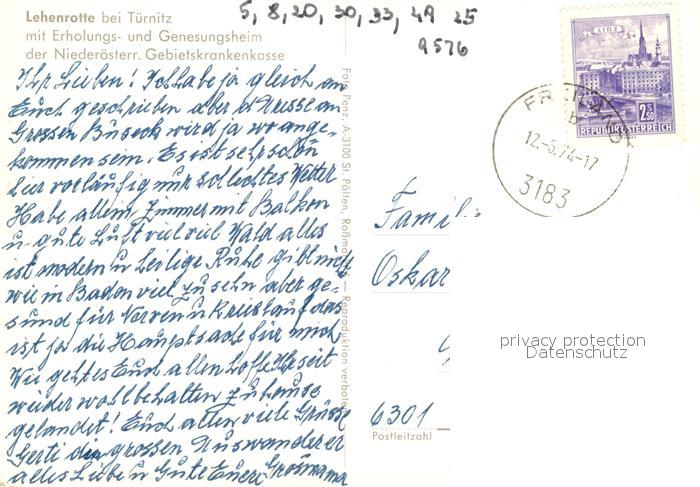 Lehenrotte bei Türnitz
mit Erholungs- und Genesungsheim
der Niederösterr. Gebietskrankenkasse
5, 8, 20, 30, 33, 49 25
9576
Ihr Lieben! Ich habe ja gleich an
Euch geschrieben aber d Adresse an
Grossen Buseck wird ja wo ange-
kommen sein. Es ist sehr schön
hier vorläufig nur schlechtes Wetter
Habe allein Zimmer mit Balkon
u. gute Luft viel viel Wald alles
ist modern u heilige Ruhe gibt nicht
wie in Baden viel zu sehn aber ge-
sund für Nerven u Kreislauf das
ist ja die Hauptsache für mich
Wie geht es Euch allen hoffe Ihr seit
wieder wohlbehalten zuhause
gelandet! Euch allen viele Grüsse
Gerti den grossen Auswanderer
alles Liebe u Gute Eure Grossmama
Foto Penz, A-3100 St. Pölten, Roßmarkt — Reproduktion verboten
LINZ
2.50
REPUBLIK ÖSTERREICH
12.-6.74-17
3183
Famili
Oskar
6301
Postleitzahl
privacy protection
Datenschutz